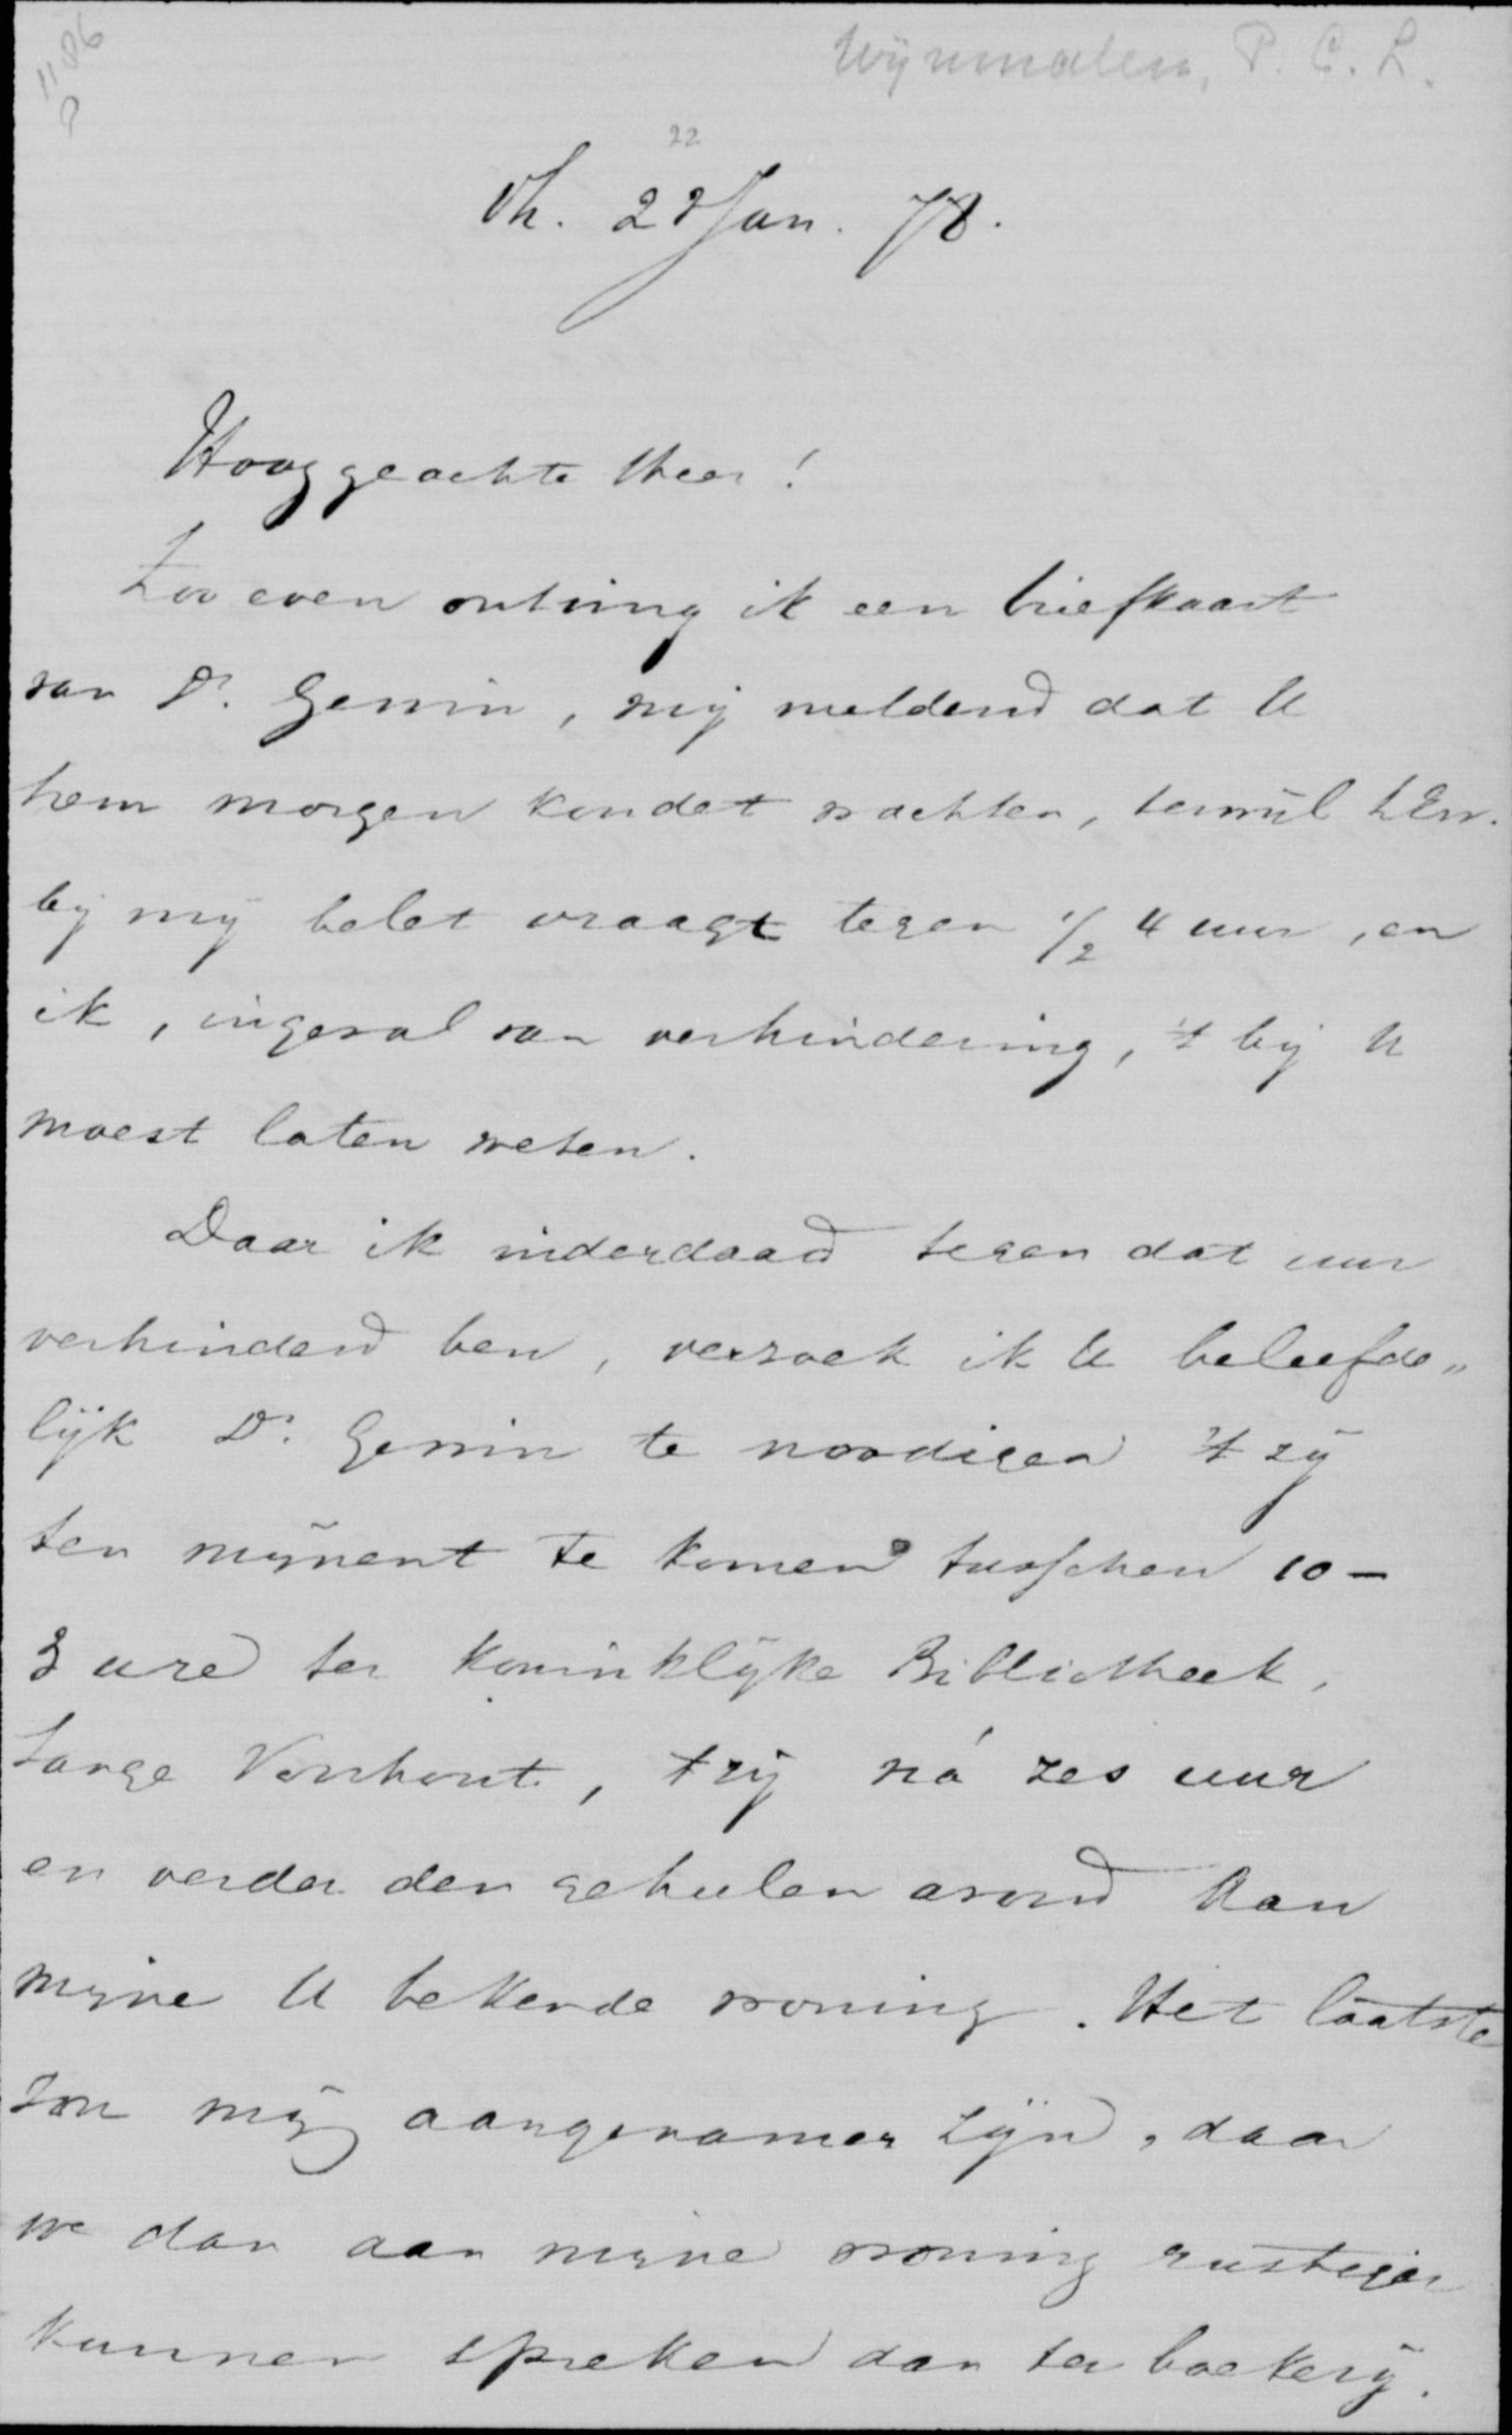 P 1186
Wijnmalen, T. C. L.
22
'sH. 22 Jan. 78.
Hooggeachte Heer!
Zoo even ontving ik een briefkaart
van Dr. Gemin, mij meldend dat U
hem morgen kondet wachten, terwijl ZEw.
bij mij belet vraagt tegen 1/2 4 uur, en
ik, ingeval van verhindering, 't bij U
moest laten weten.
Daar ik inderdaad tegen dat uur
verhinderd ben, verzoek ik U beleefde„
lijk Dr. Gemin te noodigen 't zij
ten mijnent te komen tusschen 10 –
3 ure ter Koninklijke Bibliotheek,
Lange Voorhout, 't zij ná zes uur
en verder den geheelen avond aan
mijne U bekende woning. Het laatste
zou mij aangenamer zijn, daar
we dan aan mijne woning rustiger
kunnen spreken dan ter boekerij.